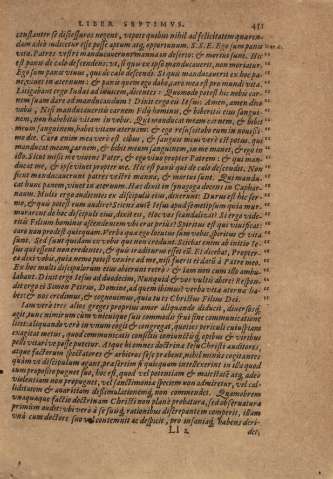 LIBER SEPTIMVS. 451
constanter se discessuros negent, vepote quibus nihil ad felicitatem quaren-
dam adeò indicetur esse posse aptum atq; opportunum. S.S.E. Ego sum panis
vitæ. Patres vestri manducauerunt manna in deserto: & mortui sunt. Hic
est panis de cælo descendens: vt, si quis ex ipso manducauerit, non moriatur.
Ego sum panis viuus, qui de cælo descendi. Si quis manducauerit ex hoc pa-
ne, viuet in æternum: & panis quem ego dabo, caro mea est pro mundi vita.
Litigabant ergo Iudæi ad inuicem, dicentes: Quomodo potest hic nobis car-
nem suam dare ad manducandum? Dixit ergo eis Iesus: Amen, amen dico
vobis, Nisi manducaueritis carnem Filij hominis, & biberitis eius sangui-
nem, non habebitis vitam in vobis. Qui manducat meam carnem, & bibit
meum sanguinem, habet vitam æternam: & ego resuscitabo eum in nouissi-
mo die. Caro enim mea verè est cibus, & sanguis meus verè est potus. qui
manducat meam carnem, & bibit meum sanguinem, in me manet, & ego in
illo. Sicut misit me viuens Pater, & ego viuo propter Patrem: & qui man-
ducat me, & ipse viuet propter me. Hic est panis qui de cælo descendit. Non
sicut manducauerunt patres vestri manna, & mortui sunt. Qui mandu-
cat hunc panem, viuet in æternum. Hæc dixit in synagoga docens in Caphar-
naum. Multi ergo audientes ex discipulis eius, dixerunt: Durus est hic ser-
mo, & quis potest eum audire? Sciens autē Iesus apud semetipsum quia mur-
murarent de hoc discipuli eius, dixit eis, Hoc vos scandalizat? Si ergo vide-
ritis Filium hominis ascendentem vbi erat prius? Spiritus est qui viuificat:
caro non prodest quicquam. Verba quæ ego locutus sum vobis, spiritus & vita
sunt. Sed sunt quidam ex vobis qui non credunt. Sciebat enim ab initio Ie-
sus qui essent non credentes, & quis traditurus esset eū. Et dicebat, Propter-
ea dixi vobis, quia nemo potest venire ad me, nisi fuerit ei datū à Patre meo.
Ex hoc multi discipulorum eius abierunt retrò: & iam non cum illo ambu-
labant. Dixit ergo Iesus ad duodecim, Nunquid & vos vultis abire? Respon-
dit ergo ei Simon Petrus, Domine, ad quem ibimus? verba vitæ æternæ ha-
bes: & nos credimus, & cognouimus, quia tu es Christus Filius Dei.
Iam verò tres alios greges proprius amor aliquando diducit, diuersosq;
agit, punc nimirum cùm vniuscuiusque suis commodis frui sine communicatione
licet: aliquando verò in vnum cogit & congregat, quoties periculi cuiuspiam
exagitat metus, quod communicatis consiliis consentientibq; opibus & viribus
pelli vitari ve posse putetur. Atque hi omnes doctrina Iesu Christi auditores,
atque factorum spectatores & arbitros sese præbent, nihil minus cogitantes
quàm vt discipulum agant, præsertim si quicquam intellexerint in illa quod
cum proposito pugnet suo, hoc est, quod vel potentiam & maiestatē atq; adeò
violentiam non propugnet, vel sanctimonia speciem non admiretur, vel cal-
liditatem & auaritiam dissimulationemq́; non commendet. Quamobrem
vnaquæque factio doctrinam Christi non planè probatura, sed obseruatura
primùm audit: vbi verò à se suisq́; rationibus discrepantem comperit, illam
vnà cum doctore suo vel contemnit ac despicit, pro insaniaq́; haberi deri-
Ll 2 det,